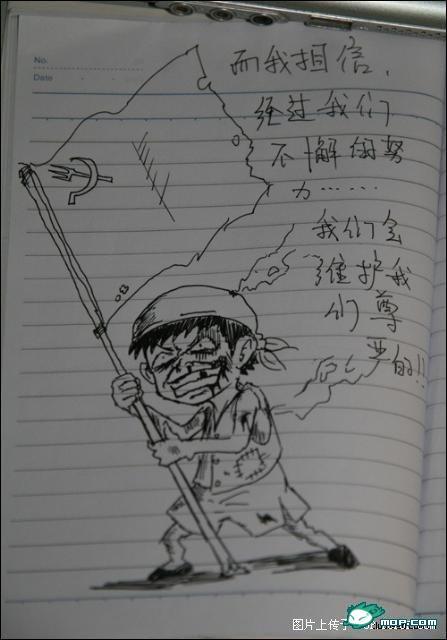 No.
Date
而我相信，
经过我们
不懈的努
力……
我们会
维护我
们尊
严的!!
图片上传于
MOP.COM